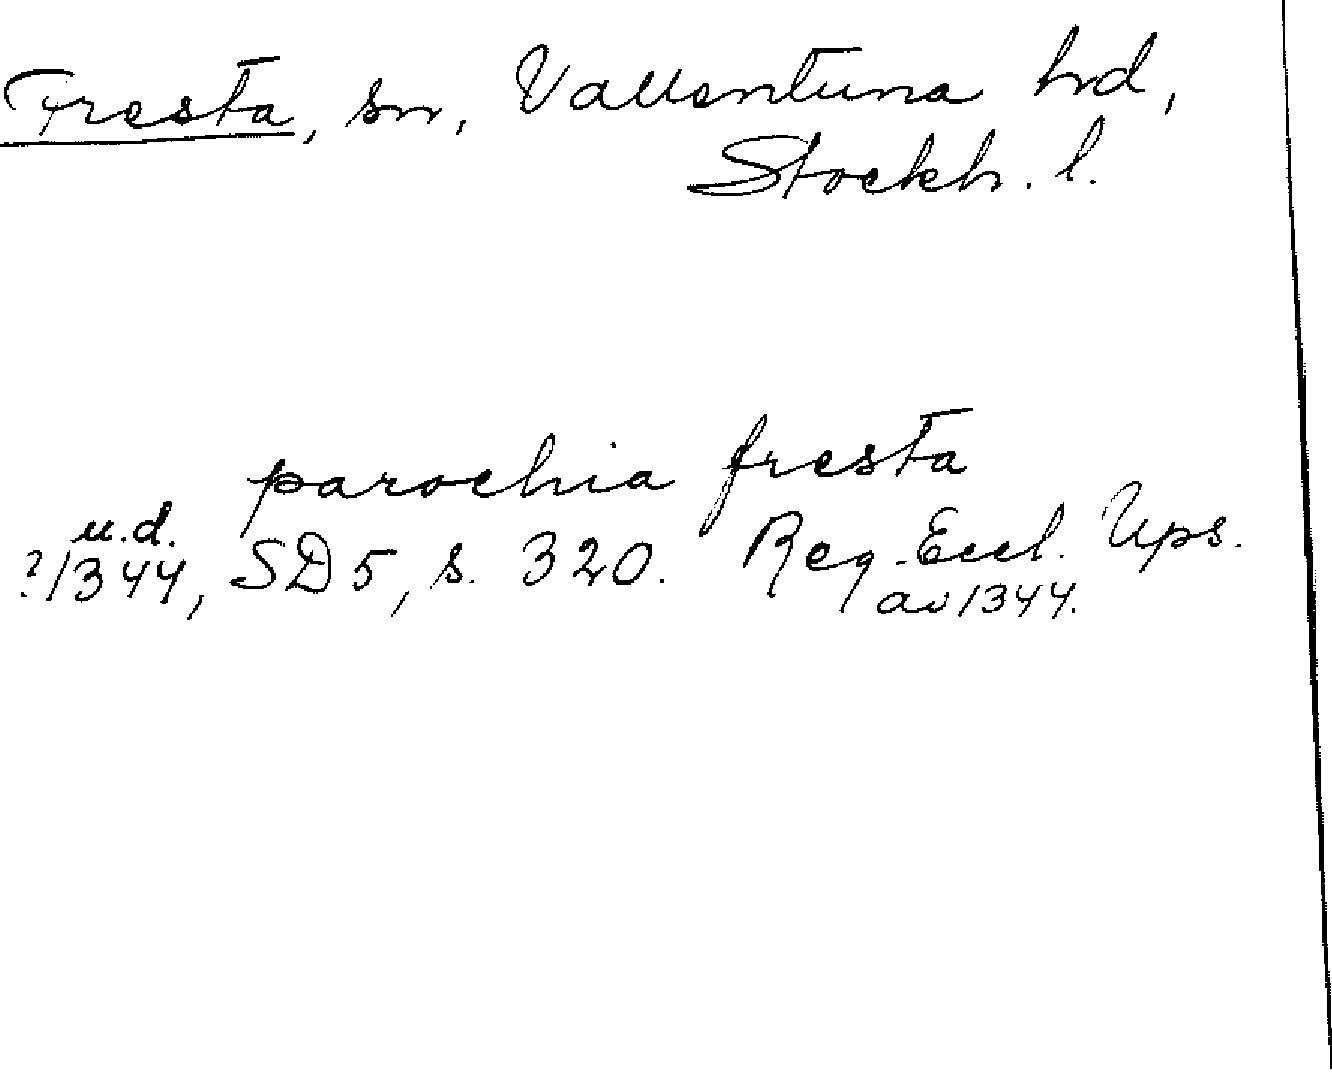 Fresta, sn, Vallentuna hrd,
Stockh. l.
parochia fresta
u.d.
?/1344, SD 5, s. 320. Reg. Eccl. Ups.
av 1344.